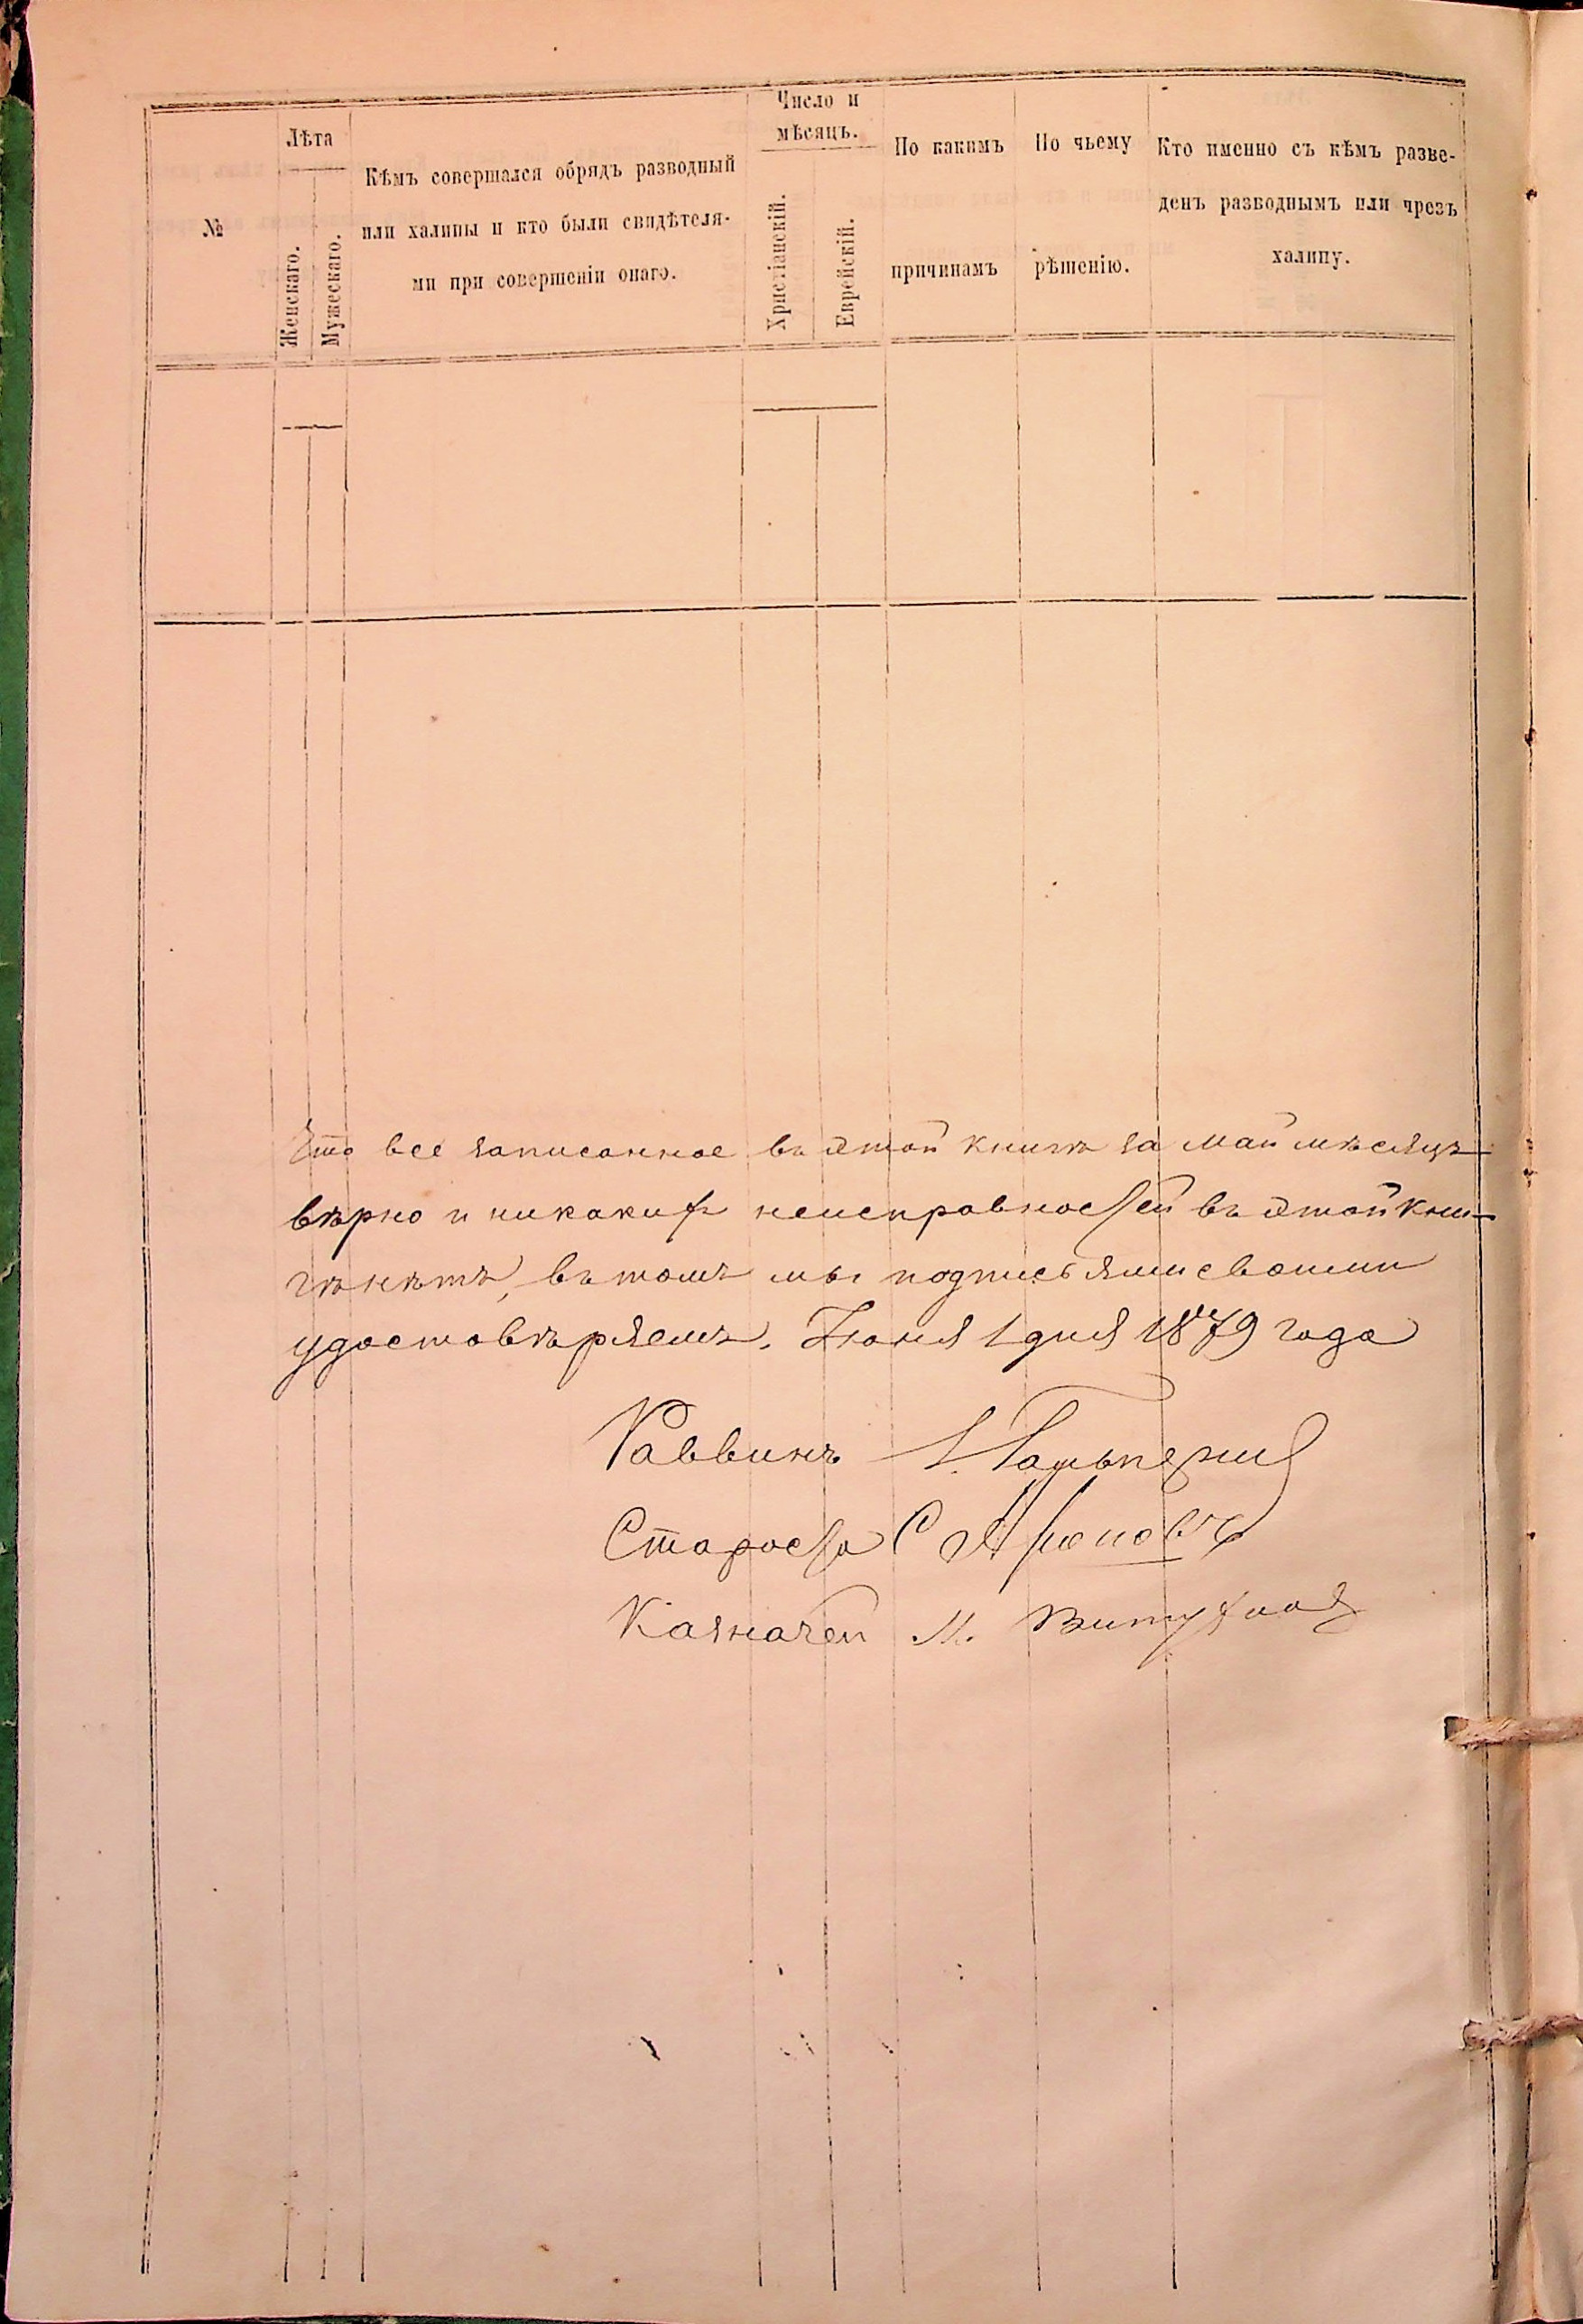 №
Лѣта
Женскаго.
Мужескаго.
Кѣмъ совершался обрядъ разводный
или халицы и кто были свидѣтеля-
ми при совершеніи онаго.
Число и
мѣсяцъ.
Христіанскій.
Еврейскій.
По какимъ
причинамъ
По чьему
рѣшенію.
Кто именно съ кѣмъ разве-
денъ разводнымъ или чрезъ
халицу.
Что все записанное въ этой книгѣ за Май мѣсяцъ
вѣрно и никакихъ неисправностей въ этой кни-
гѣ нѣтъ, въ томъ мы подписями своими
удостовѣряемъ. Іюня 1 дня 1879 года
Раввинъ Гальперин
Староста С Ароновъ
Казначей М.